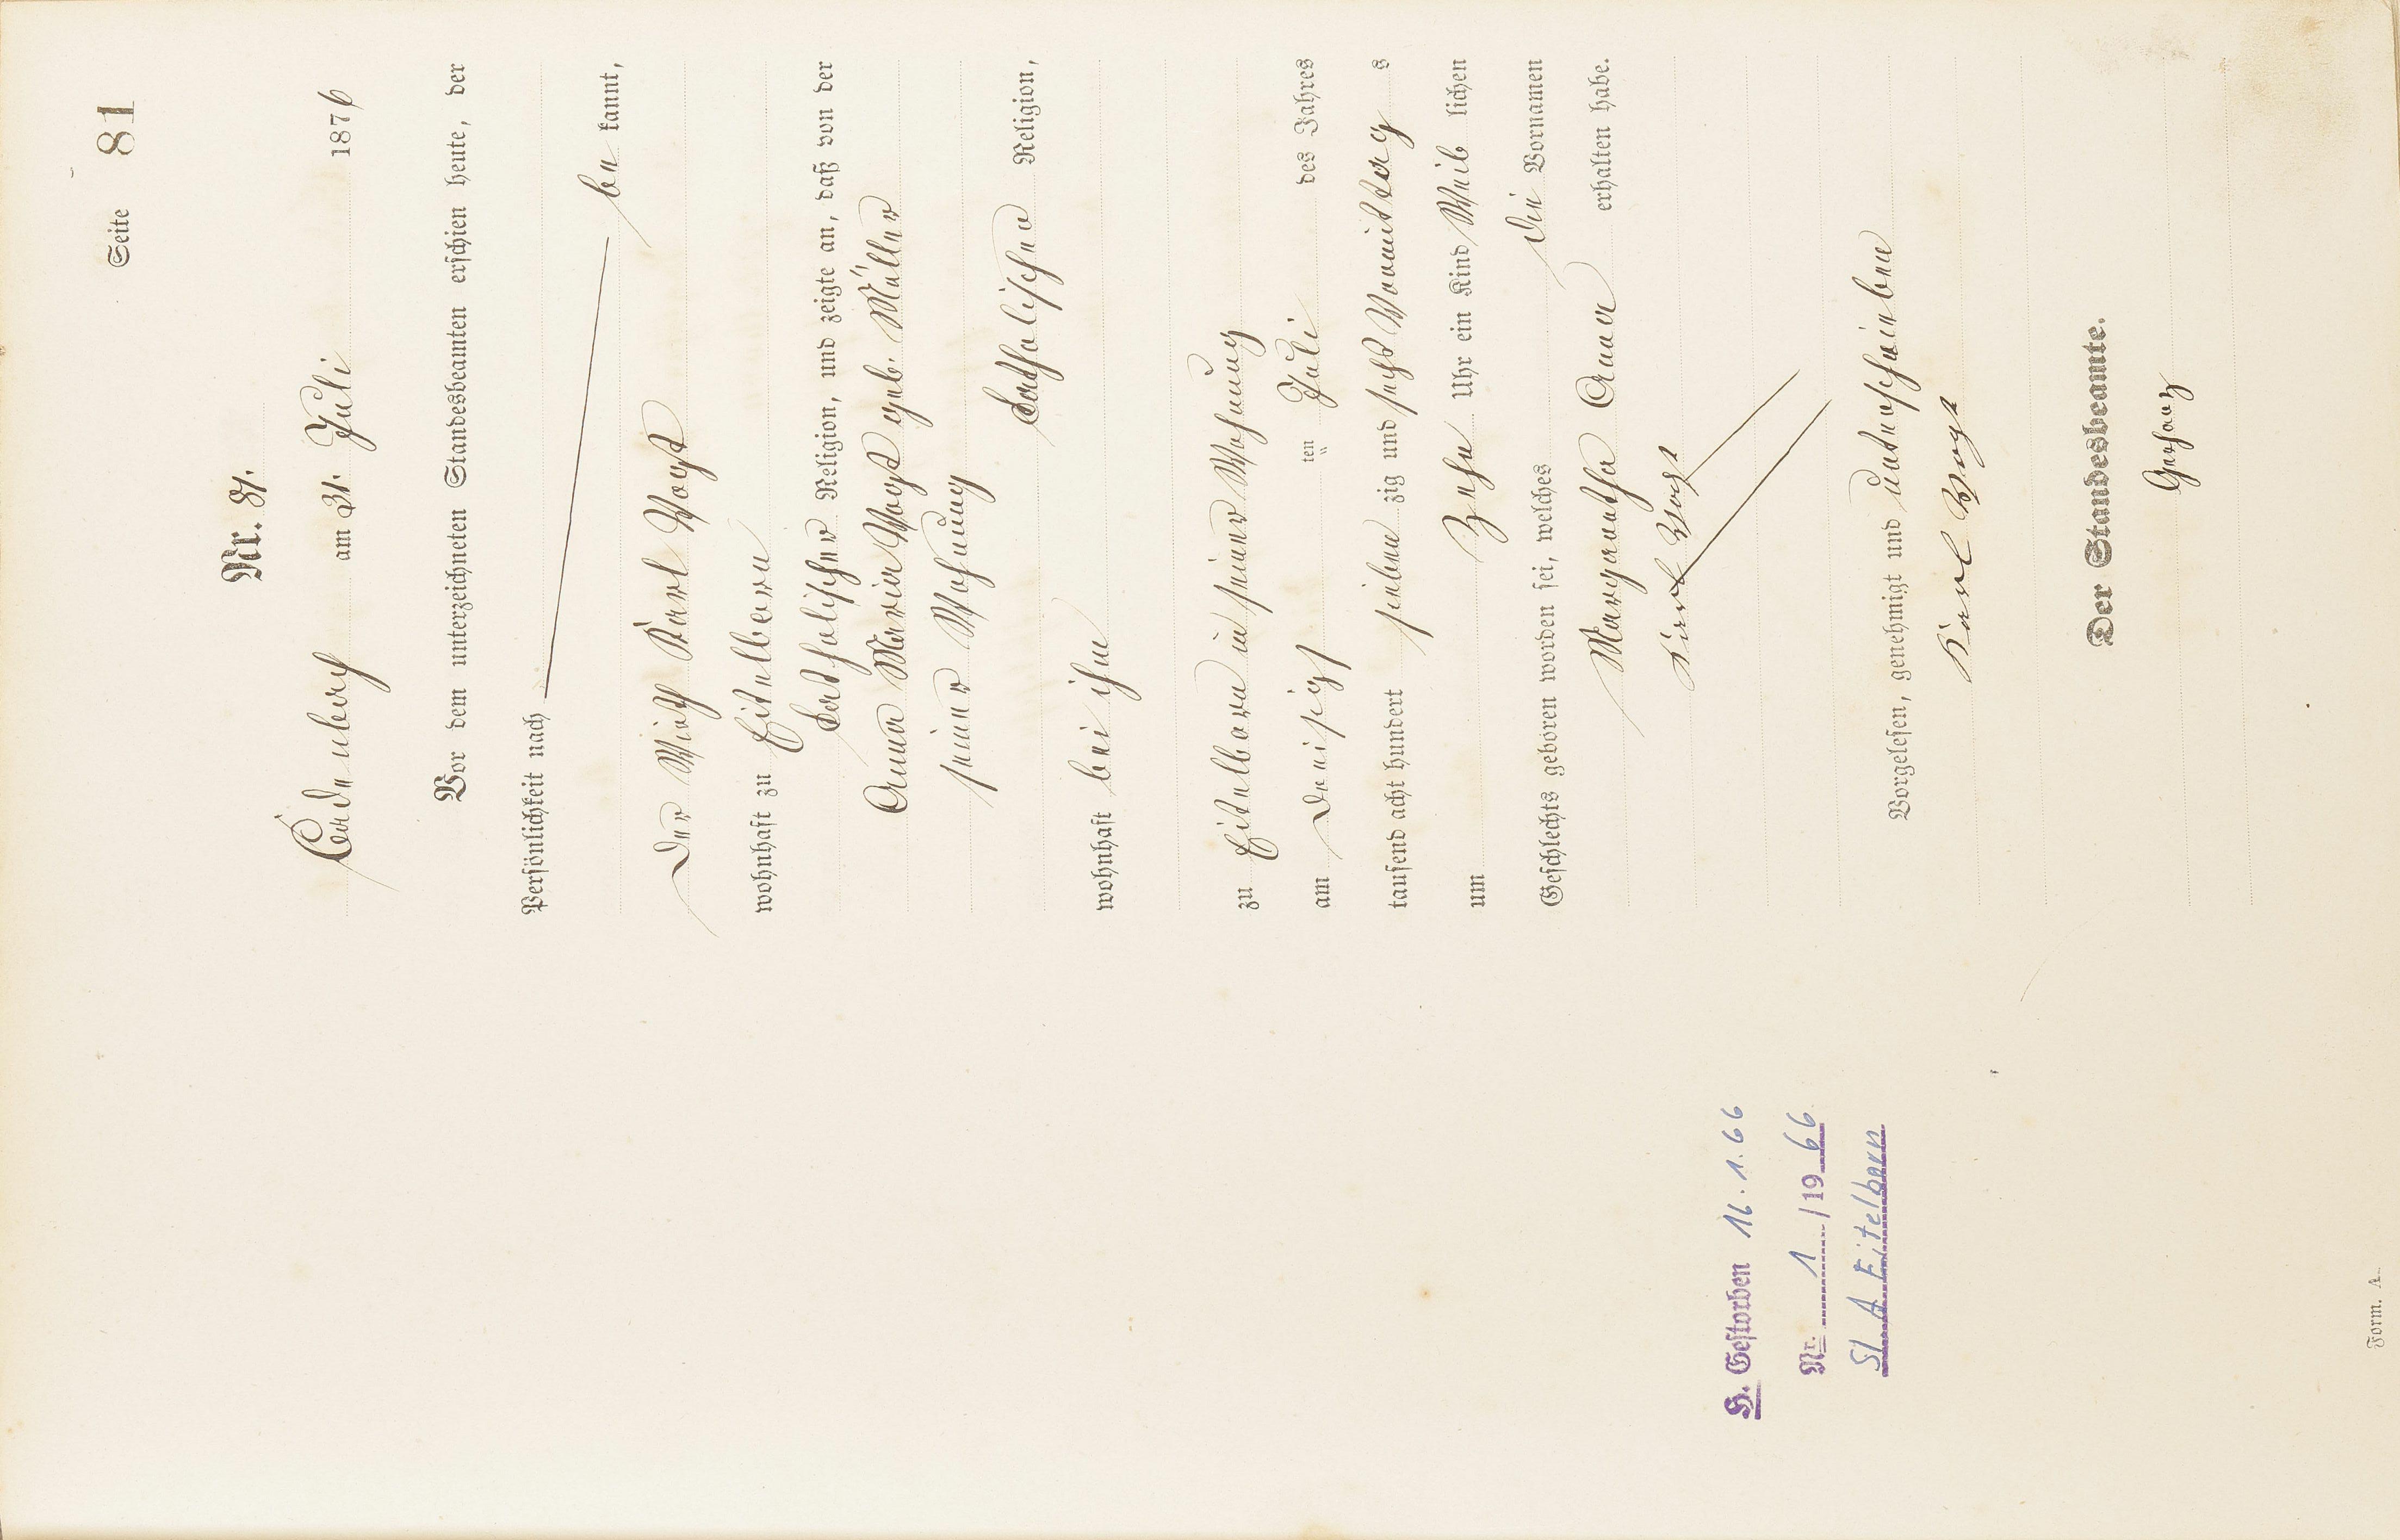 Seite 81
Nr. 81.
Cadenbach am 31. Juli 1876
Vor dem unterzeichneten Standesbeamten erschien heute, der
Persönlichkeit nach
be kannt,
Der Wirth Karl Vogt
wohnhaft zu Eitelborn
katholischer Religion, und zeigte an, daß von der
Anna Maria Vogt geb. Müller
seiner Wohnung
katholischer Religion,
wohnhaft bei ihm
zu Eitelborn in seiner Wohnung
am Dreisigst ten Juli des Jahres
tausend acht hundert sieben zig und sechs Vormittag s
um Zehn Uhr ein Kind Weib lichen
Geschlechts geboren worden sei, welches die Vornamen
Margaretha Anna erhalten habe.
Karl Vogt
Vorgelesen, genehmigt und unterschrieben
Karl Vogt
Der Standesbeamte.
H. Gestorben 16.1.66
Nr. 1/1966
St A Eitelborn
Form. A.